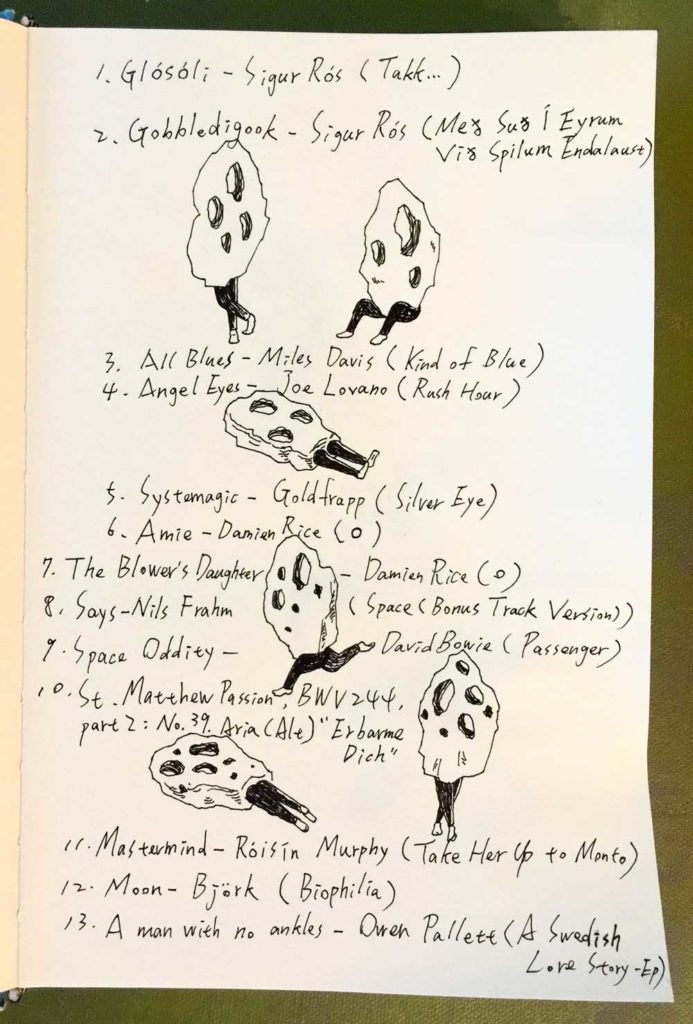 1. Glósóli - Sigur Rós (Takk...)
2. Gobbledigook - Sigur Rós (Með Suð Í Eyrum
Við Spilum Endalaust)
3. All Blues - Miles Davis (Kind of Blue)
4. Angel Eyes - Joe Lovano (Rush Hour)
5. Systemagic - Goldfrapp (Silver Eye)
6. Amie - Damien Rice (O)
7. The Blower's Daughter - Damien Rice (O)
8. Says - Nils Frahm (Space (Bonus Track Version))
9. Space Oddity - David Bowie (Passenger)
10. St. Matthew Passion, BWV 244,
part 2: No. 39. Aria (Alt) "Erbarme
Dich"
11. Mastermind - Róisín Murphy (Take Her Up to Monto)
12. Moon - Björk (Biophilia)
13. A man with no ankles - Owen Pallett (A Swedish
Love Story - Ep)